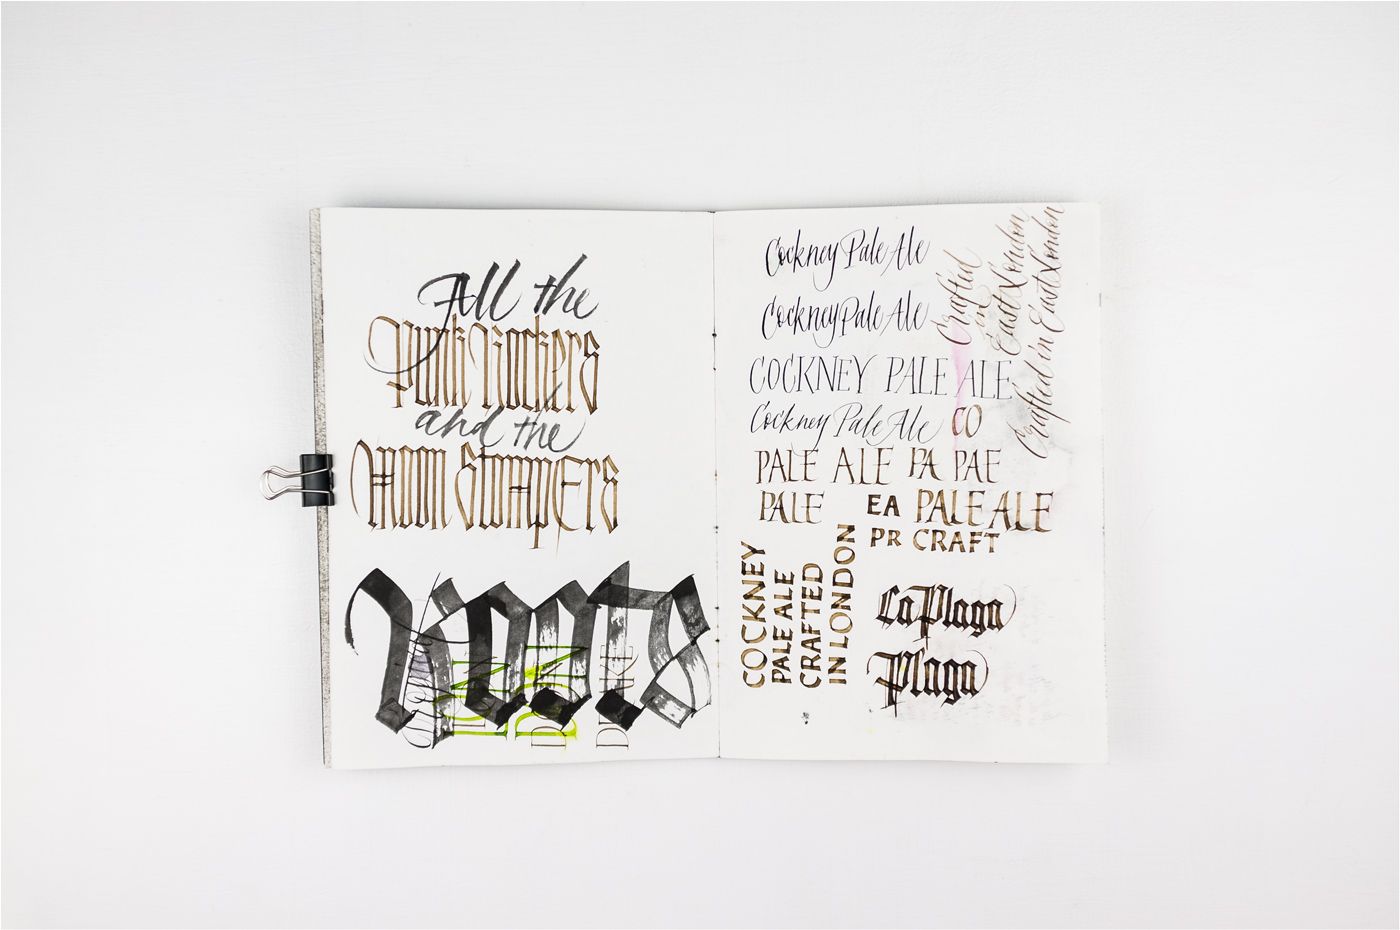 All the
Punk Rockers
and the
Moon Stompers
Roots
Cockney Pale Ale
Cockney Pale Ale
COCKNEY PALE ALE
Cockney Pale Ale CO
PALE ALE PA PAE
PALE EA PALE ALE
PR CRAFT
Crafted
in
East London
Crafted in East London
COCKNEY
PALE ALE
CRAFTED
IN LONDON
La Plaga
Plaga